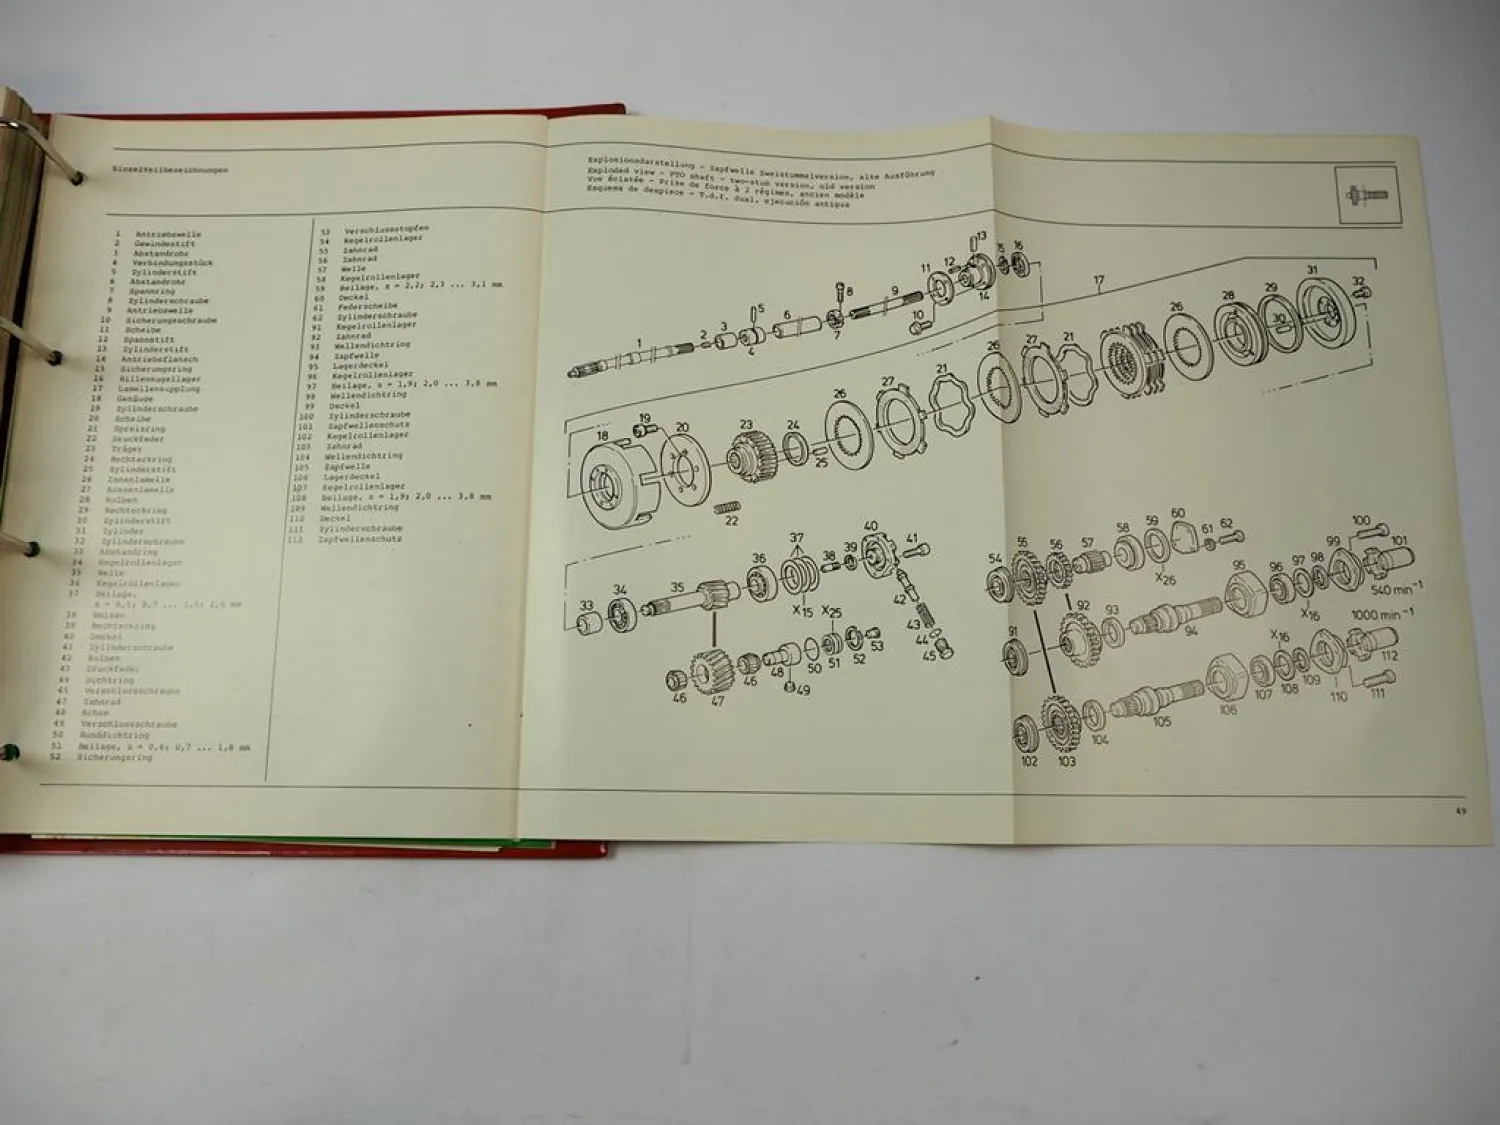 Einzelteilbezeichnungen
Explosionsdarstellung - Zapfwelle Zweistummelversion, alte Ausführung
Exploded view - PTO shaft - two-stub version, old version
Vue éclatée - Prise de force à 2 régimes, ancien modèle
Esquema de despiece - T.d.f. dual, ejecución antigua
1 Antriebswelle
2 Gewindestift
3 Abstandrohr
4 Verbindungsstück
5 Zylinderstift
6 Abstandrohr
7 Spannring
8 Zylinderschraube
9 Antriebswelle
10 Sicherungsschraube
11 Scheibe
12 Spannstift
13 Zylinderstift
14 Antriebsflansch
15 Sicherungsring
16 Rillenkugellager
17 Lamellenkupplung
18 Gehäuse
19 Zylinderschraube
20 Scheibe
21 Spreizring
22 Druckfeder
23 Träger
24 Rechteckring
25 Zylinderstift
26 Innenlamelle
27 Aussenlamelle
28 Kolben
29 Rechteckring
30 Zylinderstift
31 Zylinder
32 Zylinderschraube
33 Abstandring
34 Kegelrollenlager
35 Welle
36 Kegelrollenlager
37 Beilage,
38
39 Rechteckring
40 Deckel
41 Zylinderschraube
42 Kolben
43 Druckfeder
44 Dichtring
45 Verschlussschraube
47 Zahnrad
48 Achse
49 Verschlussschraube
50 Runddichtring
51 Beilage, s = 0,6; 0,7 ... 1,8 mm
52 Sicherungsring
53 Verschlusstopfen
54 Kegelrollenlager
55 Zahnrad
56 Zahnrad
57 Welle
58 Kegelrollenlager
59 Beilage, s = 2,2; 2,3 ... 3,1 mm
60 Deckel
61 Federscheibe
62 Zylinderschraube
91 Kegelrollenlager
92 Zahnrad
93 Wellendichtring
94 Zapfwelle
95 Lagerdeckel
96 Kegelrollenlager
97 Beilage, s = 1,9; 2,0 ... 3,8 mm
98 Wellendichtring
99 Deckel
100 Zylinderschraube
101 Zapfwellenschutz
102 Kegelrollenlager
103 Zahnrad
104 Wellendichtring
105 Zapfwelle
106 Lagerdeckel
107 Kegelrollenlager
108 Beilage, s = 1,9; 2,0 ... 3,8 mm
109 Wellendichtring
110 Deckel
111 Zylinderschraube
112 Zapfwellenschutz
13
15 16
11 12
14
17
31
32
8
9
10
7
5
6
3
2
4
1
29
28
30
26
21
27
26
21
27
26
24
23
25
20
19
18
22
37
40
41
38 39
36
35
34
33
X15 X25
42
43
44
45
53
52
51
50
48
49
46
47
46
54
55
56
57
58
59
60
61
62
X26
91
92
93
94
95
96
97
98
99
100
101
X16
540 min-1
1000 min-1
X16
112
111
110
109
108
107
106
105
104
103
102
49